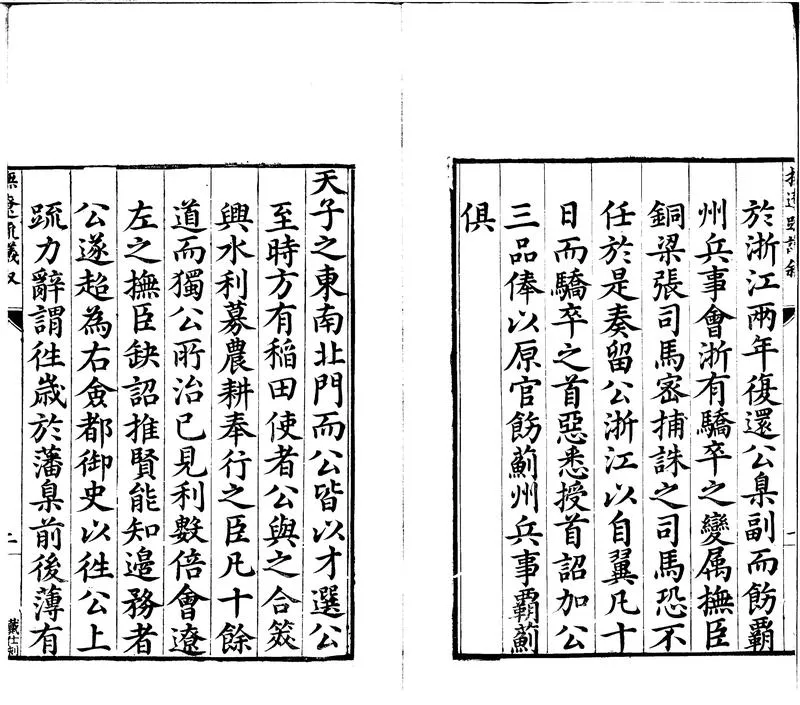 於浙江兩年復還公臬副而飭覇
州兵事會浙有驕卒之變属撫臣
銅梁張司馬宻捕誅之司馬恐不
任於是奏留公浙江以自翼凡十
日而驕卒之首惡悉授首詔加公
三品俸以原官飭薊州兵事覇薊
俱
天子之東南北門而公皆以才選公
至時方有稻田使者公與之合筴
興水利募農耕奉行之臣凡十餘
道而獨公所治已見利數倍會遼
左之撫臣缺詔推賢能知邊務者
公遂超為右僉都御史以徃公上
疏力辭謂徃歲於藩臬前後薄有
撫遼疏議叙
二